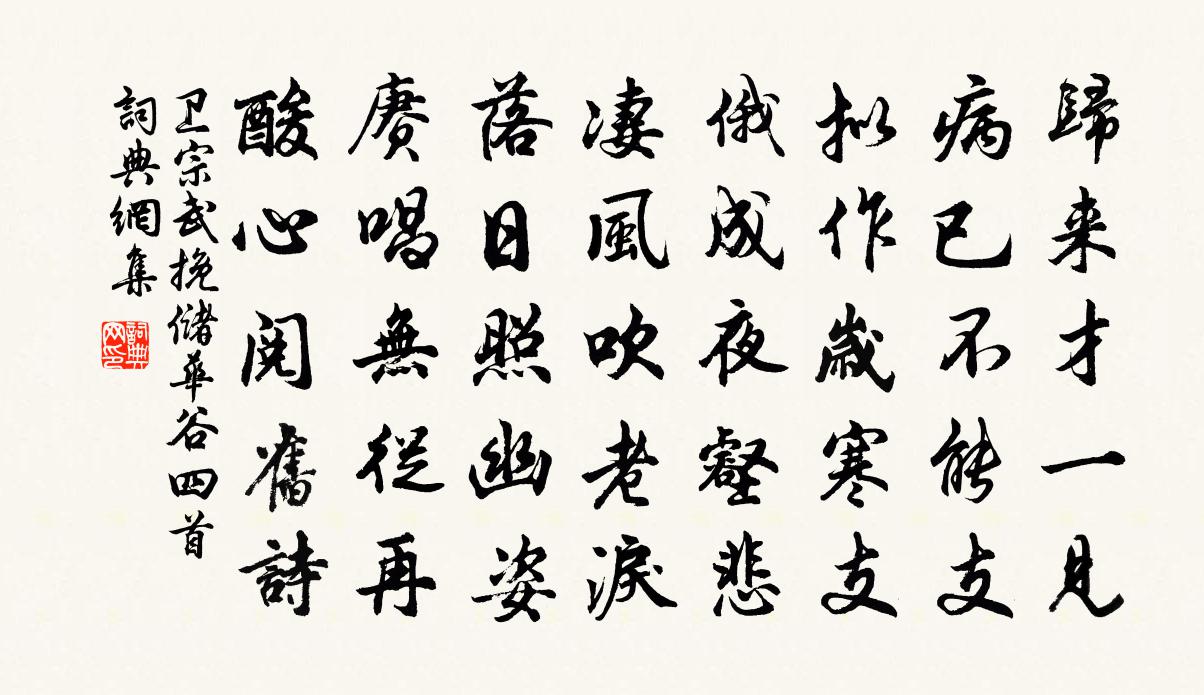 歸来才一見
病已不能支
拟作歲寒支
俄成夜壑悲
凄風吹老淚
落日照幽姿
赓唱無從再
酸心閱舊詩
卫宗武挽儲華谷四首
詞典網集
詞典网印